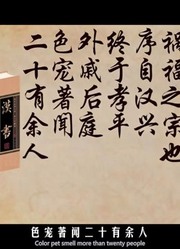 祸福之宗也
序自汉兴
终于孝平
外戚后庭
色宠著闻
二十有余人
汉书
色宠著闻二十有余人
Color pet smell more than twenty people